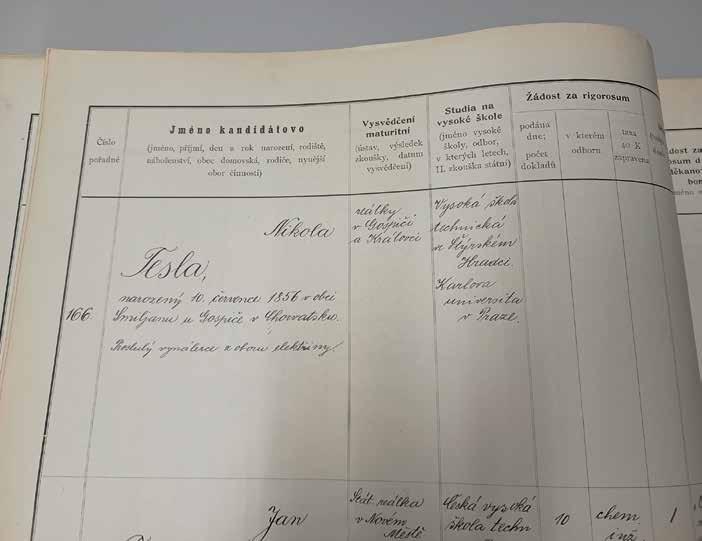 Číslo
pořadné
Jméno kandidátovo
(jméno, příjmí, den a rok narození, rodiště,
náboženství, obec domovská, rodiče, nynější
obor činnosti)
Vysvědčení
maturitní
(ústav, výsledek
zkoušky, datum
vysvědčení)
Studia na
vysoké škole
(jméno vysoké
školy, odbor,
v kterých letech,
II. zkouška státní)
Žádost za rigorosum
podána
dne;
počet
dokladů
v kterém
odboru
taxa
40 K
zapravena
166.
Nikola
Tesla,
narozený 10. července 1856 v obci
Smiljanu u Gospiče v Chorvatsku.
Proslulý vynálezce z oboru elektřiny.
reálky
v Gospiči
a Královci
Vysoká škola
technická
ve Štýrském
Hradci.
Karlova
universita
v Praze.
Jan
Stát. reálka
v Novém
Městě
Česká vysoká
škola techn
10
chem.
inž.
1